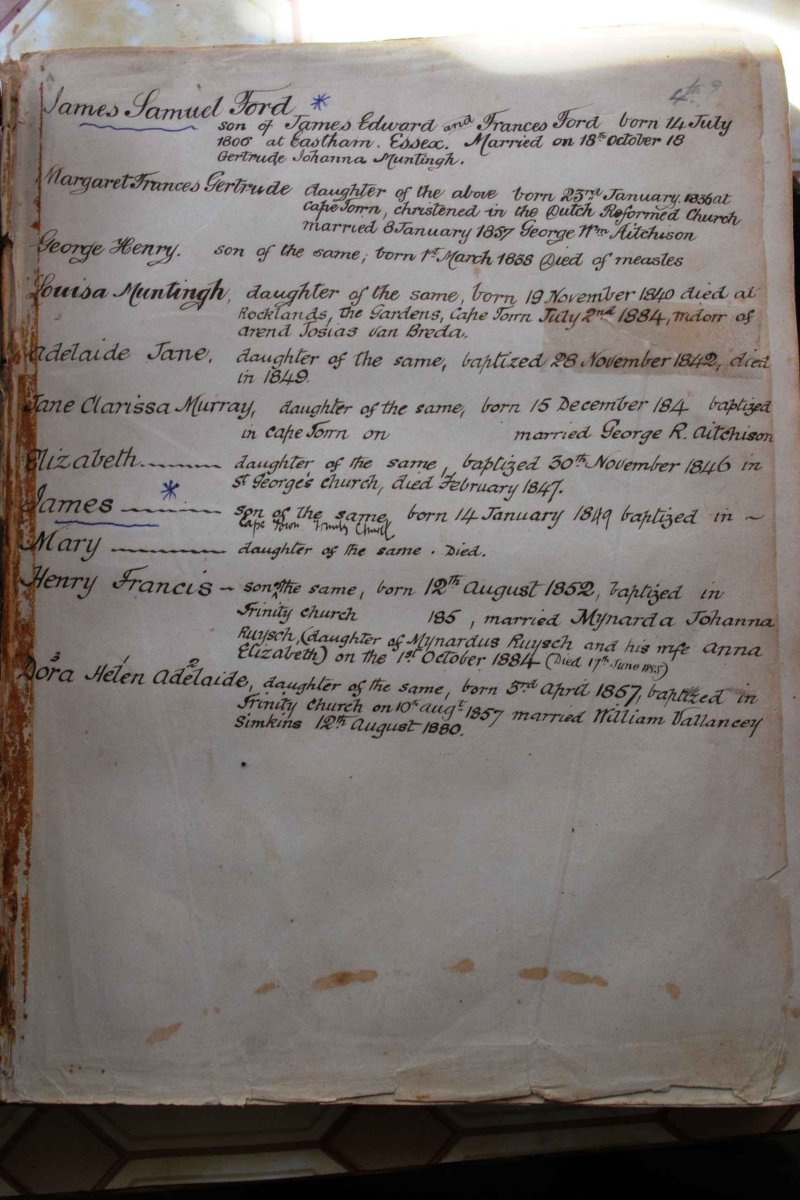 4th 9
James Samuel Ford *
son of James Edward and Frances Ford born 14 July
1806 at Eastham. Essex. Married on 18th October 18
Gertrude Johanna Muntingh.
Margaret Frances Gertrude daughter of the above born 23rd January. 1836 at
Cape Town, christened in the Dutch Reformed Church
married 8 January 1857 George Wm Aitchison
George Henry. son of the same, born 1st March 1838 Died of measles
Louisa Muntingh, daughter of the same, born 19 November 1840 died at
Rocklands, the Gardens, Cape Town July 2nd 1884, widow of
Arend Josias van Breda.
Adelaide Jane, daughter of the same, baptized 28 November 1842, died
in 1849.
Jane Clarissa Murray, daughter of the same, born 15 December 184 baptized
in Cape Town on married George R. Aitchison
Elizabeth........ daughter of the same, baptized 30th November 1846 in
St George's Church, died February 1847.
James * son of the same, born 14 January 1849 baptized in ~
Cape Town Trinity Church
Mary daughter of the same. Died.
Henry Francis ~ son of the same, born 12th August 1852, baptized in
Trinity Church 185 , married Mynarda Johanna
Ruysch, (daughter of Mynardus Ruysch and his wife Anna
Elizabeth) on the 1st October 1884 (Died 17th June 1885)
3 1 2
Dora Helen Adelaide, daughter of the same, born 3rd April 1857, baptized in
Trinity Church on 10th Augt 1857 married William Vallancey
Simkins 12th August 1880.